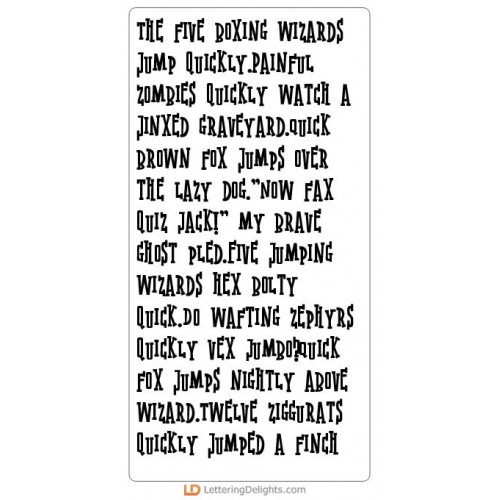 THE FIVE BOXING WIZARDS
JUMP QUICKLY.PAINFUL
ZOMBIES QUICKLY WATCH A
JINXED GRAVEYARD.QUICK
BROWN FOX JUMPS OVER
THE LAZY DOG."NOW FAX
QUIZ JACK!" MY BRAVE
GHOST PLED.FIVE JUMPING
WIZARDS HEX BOLTY
QUICK.DO WAFTING ZEPHYRS
QUICKLY VEX JUMBO?QUICK
FOX JUMPS NIGHTLY ABOVE
WIZARD.TWELVE ZIGGURATS
QUICKLY JUMPED A FINCH
LD LetteringDelights.com